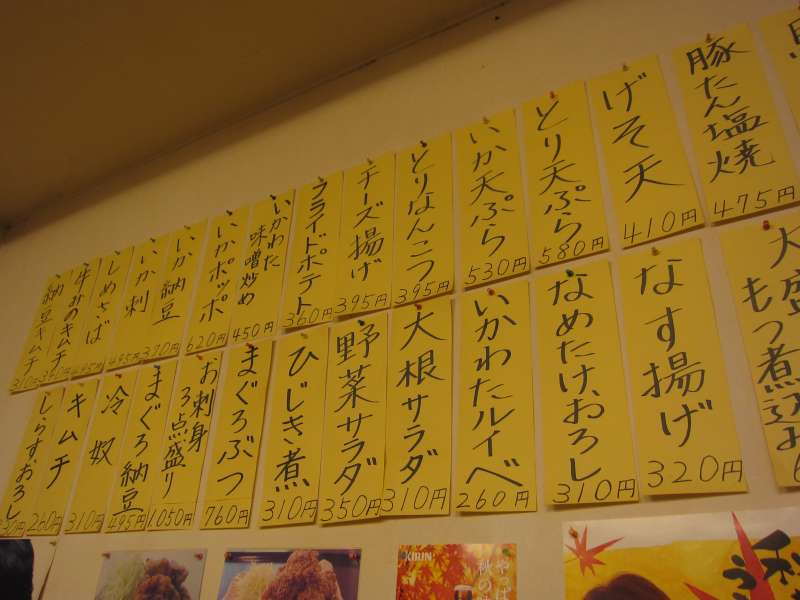 豚たん塩焼
475円
げそ天
410円
とり天ぷら
580円
いか天ぷら
530円
とりなんこつ
395円
チーズ揚げ
395円
フライドポテト
360円
いかわた
味噌炒め
450円
いかポッポ
620円
いか納豆
370円
いか刺
495円
しめさば
495円
牛すじのキムチ
納豆キムチ
310円
大盛
もつ煮込み
なす揚げ
320円
なめたけおろし
310円
いかわたルイベ
260円
大根サラダ
310円
野菜サラダ
350円
ひじき煮
310円
まぐろぶつ
760円
お刺身
3点盛り
1,050円
まぐろ納豆
495円
冷奴
310円
キムチ
260円
しらすおろし
KIRIN
やっぱ
秋の